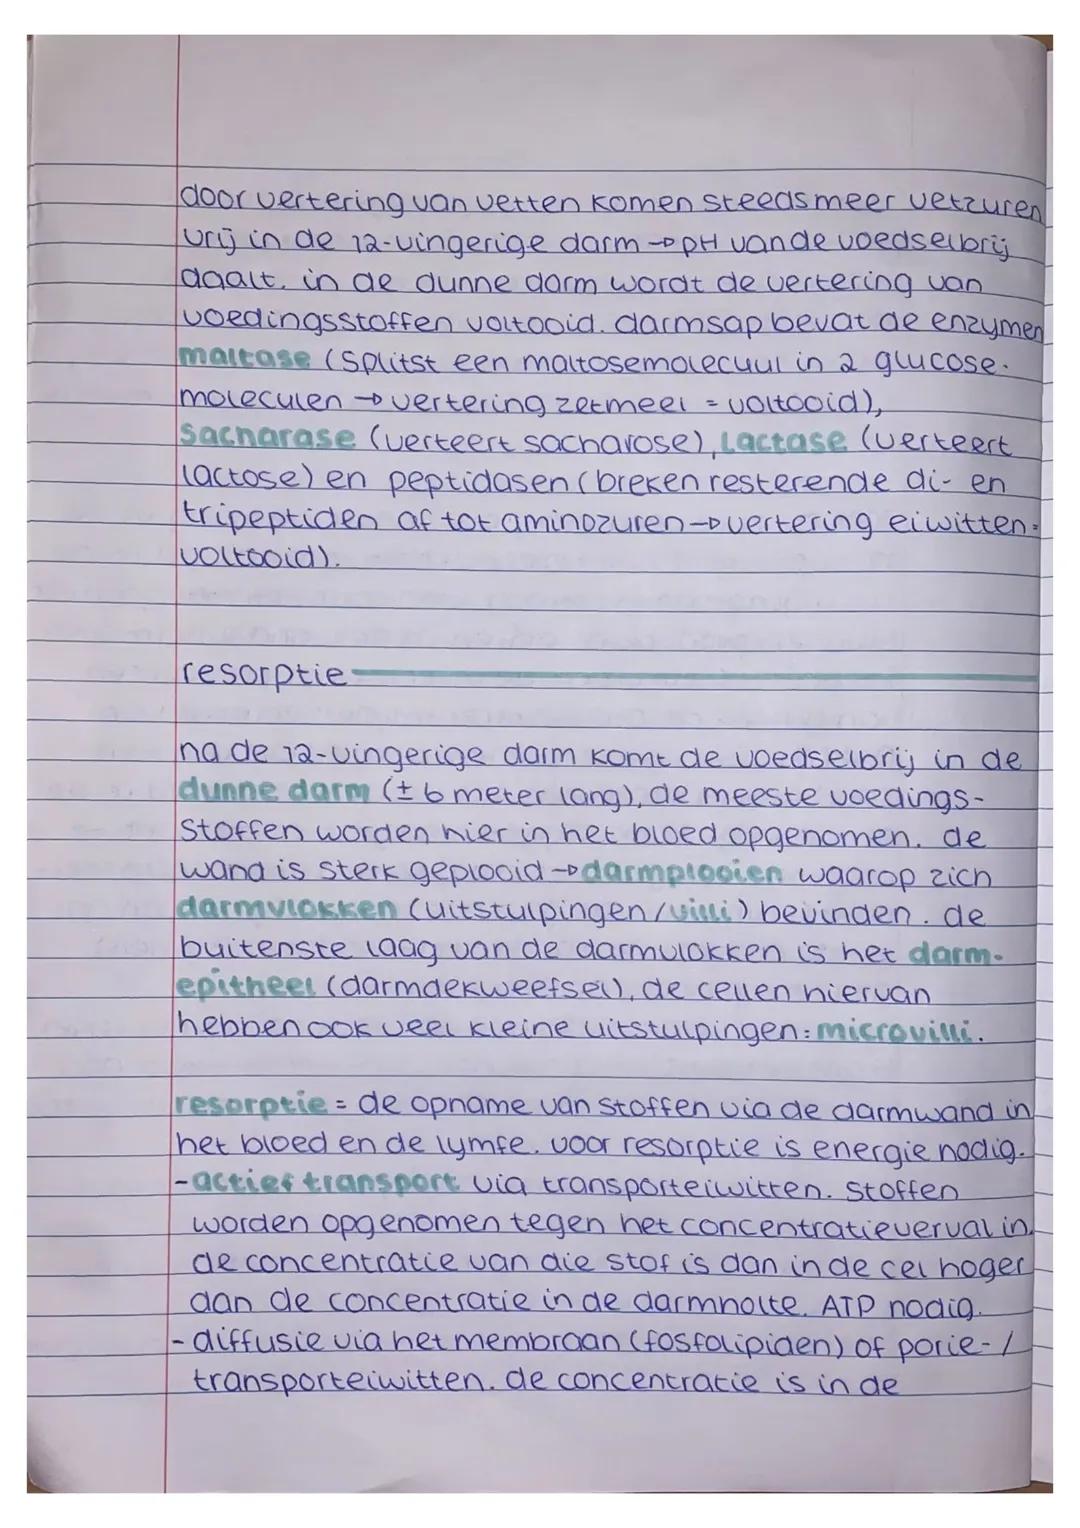 door vertering van vetten komen steeds meer vetzuren
vrij in de 12-vingerige darm → pH van de voedselbrij
daalt. in de dunne darm wordt de vertering van
voedingsstoffen voltooid. darmsap bevat de enzymen
maltase (splitst een maltosemolecuul in 2 glucose-
moleculen → vertering zetmeel = voltooid),
sacharase (verteert sacharose), lactase (verteert
lactose) en peptidasen (breken resterende di- en
tripeptiden af tot aminozuren → vertering eiwitten =
voltooid).
resorptie
na de 12-vingerige darm komt de voedselbrij in de
dunne darm (± 6 meter lang), de meeste voedings-
stoffen worden hier in het bloed opgenomen. de
wand is sterk geplooid → darmplooien waarop zich
darmvlokken (uitstulpingen/villi) bevinden. de
buitenste laag van de darmvlokken is het darm-
epitheel (darmdekweefsel), de cellen hiervan
hebben ook veel kleine uitstulpingen: microvilli.
resorptie = de opname van stoffen via de darmwand in
het bloed en de lymfe. voor resorptie is energie nodig.
- actief transport via transporteiwitten. stoffen
worden opgenomen tegen het concentratieverval in.
de concentratie van die stof is dan in de cel hoger
dan de concentratie in de darmholte. ATP nodig.
- diffusie via het membraan (fosfolipiden) of porie- /
transporteiwitten. de concentratie is in de